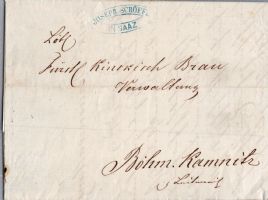 JOSEPH SCHÖFFL
IN SAAZ
Löbl
Fürstl Kinskisch Brau
Verwaltung
Böhm. Kamnitz